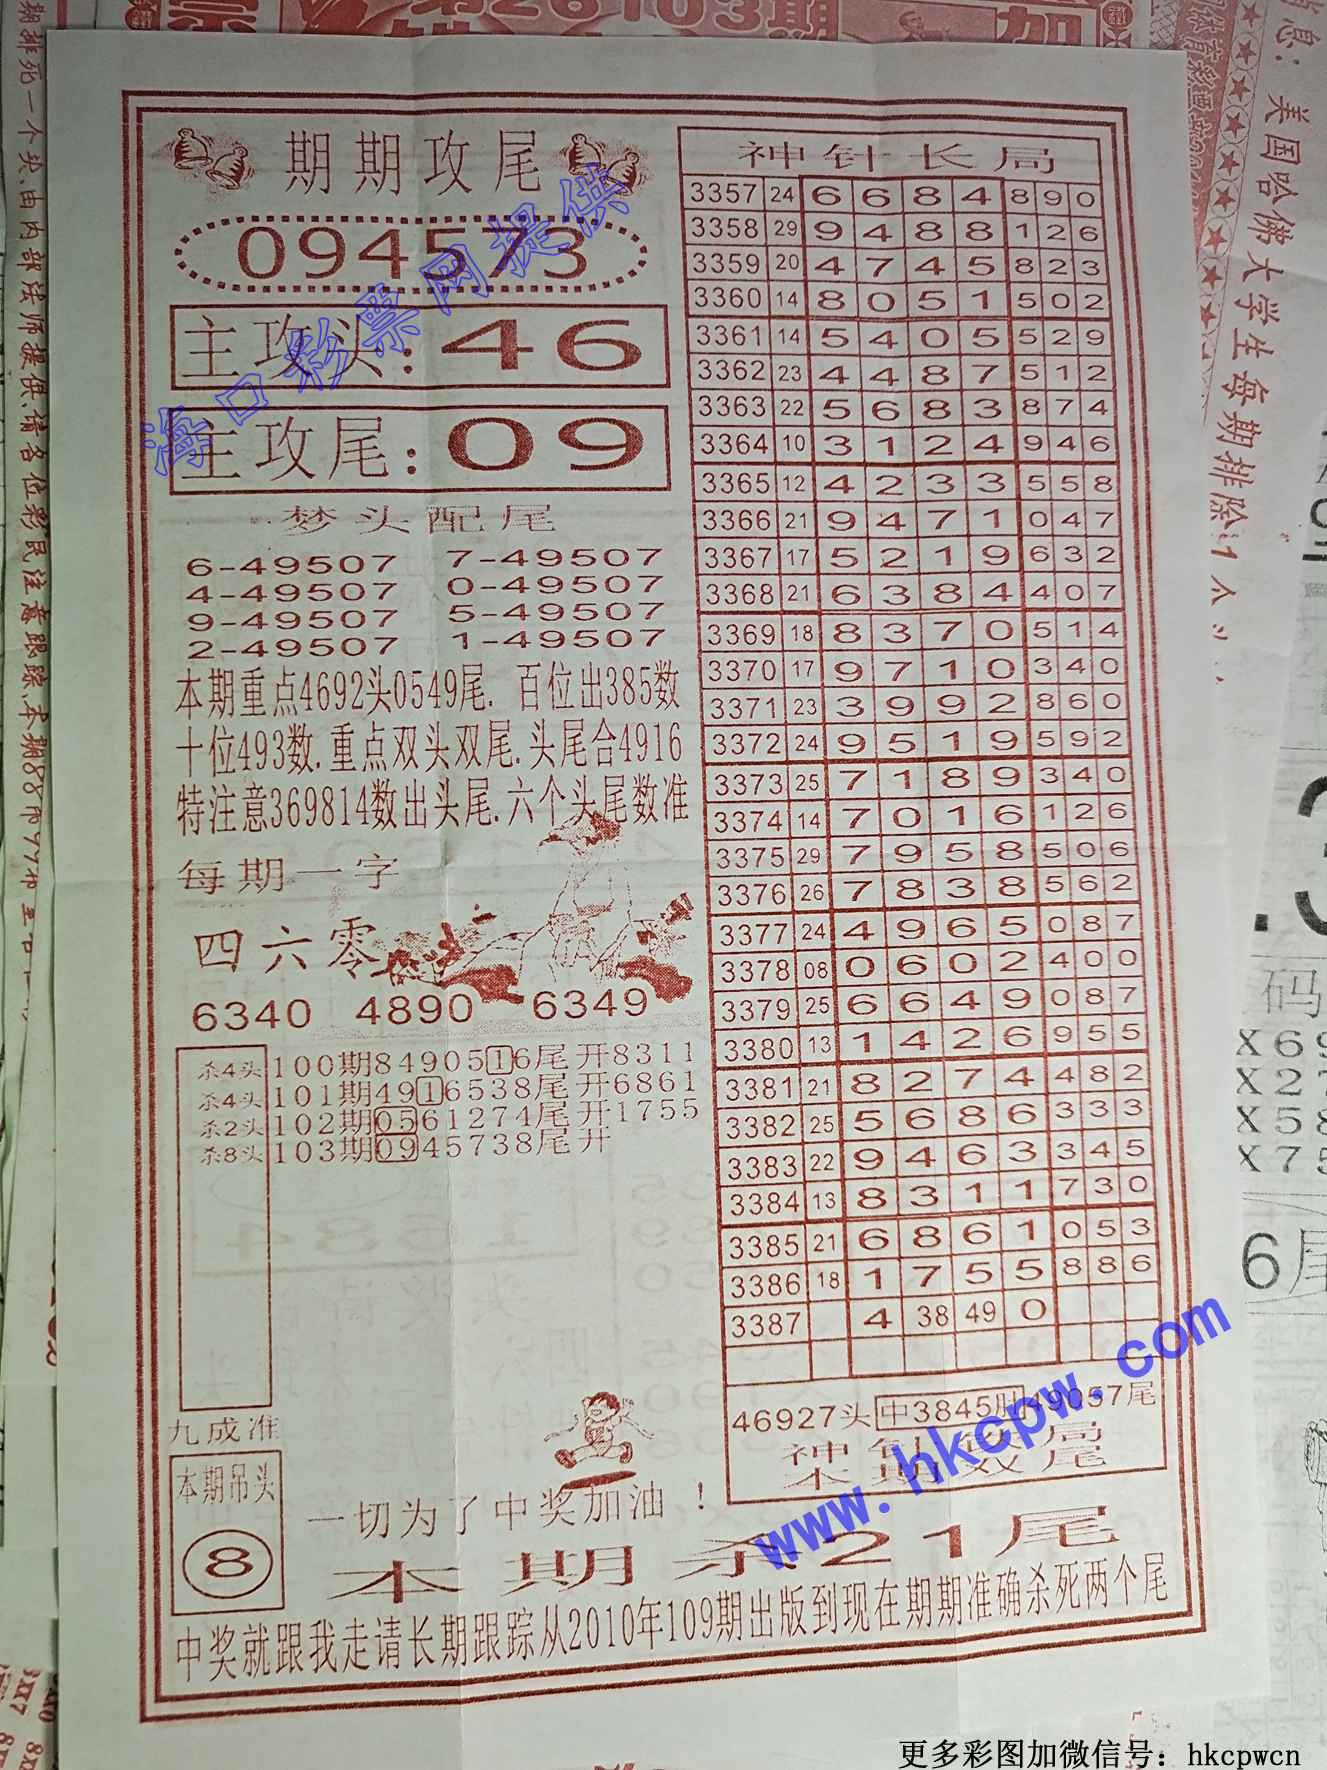 期期攻尾
094573
主攻头:46
主攻尾:09
梦头配尾
6-49507 7-49507
4-49507 0-49507
9-49507 5-49507
2-49507 1-49507
本期重点4692头0549尾.百位出385数
十位493数.重点双头双尾.头尾合4916
特注意369814数出头尾.六个头尾数准
每期一字
四六零
6340 4890 6349
杀4头 100期8490516尾开8311
杀4头 101期4916538尾开6861
杀2头 102期0561274尾开1755
杀8头 103期0945738尾开
九成准
本期吊头
8
一切为了中奖加油!
神针长局
3357 24 6 6 8 4 8 9 0
3358 29 9 4 8 8 1 2 6
3359 20 4 7 4 5 8 2 3
3360 14 8 0 5 1 5 0 2
3361 14 5 4 0 5 5 2 9
3362 23 4 4 8 7 5 1 2
3363 22 5 6 8 3 8 7 4
3364 10 3 1 2 4 9 4 6
3365 12 4 2 3 3 5 5 8
3366 21 9 4 7 1 0 4 7
3367 17 5 2 1 9 6 3 2
3368 21 6 3 8 4 4 0 7
3369 18 8 3 7 0 5 1 4
3370 17 9 7 1 0 3 4 0
3371 23 3 9 9 2 8 6 0
3372 24 9 5 1 9 5 9 2
3373 25 7 1 8 9 3 4 0
3374 14 7 0 1 6 1 2 6
3375 29 7 9 5 8 5 0 6
3376 26 7 8 3 8 5 6 2
3377 24 4 9 6 5 0 8 7
3378 08 0 6 0 2 4 0 0
3379 25 6 6 4 9 0 8 7
3380 13 1 4 2 6 9 5 5
3381 21 8 2 7 4 4 8 2
3382 25 5 6 8 6 3 3 3
3383 22 9 4 6 3 3 4 5
3384 13 8 3 1 1 7 3 0
3385 21 6 8 6 1 0 5 3
3386 18 1 7 5 5 8 8 6
3387 4 38 49 0
46927头 中3845肚 49057尾
神针致局
本期双尾
本期杀21尾
中奖就跟我走请长期跟踪从2010年109期出版到现在期期准确杀死两个尾
海口彩票网提供
www.hkcpw.com
第26103期
美国哈佛大学生每期排除
期排死一个块.由内部法师提供.请各位彩民注意跟踪.本期
码
6尾
更多彩图加微信号：hkcpwcn